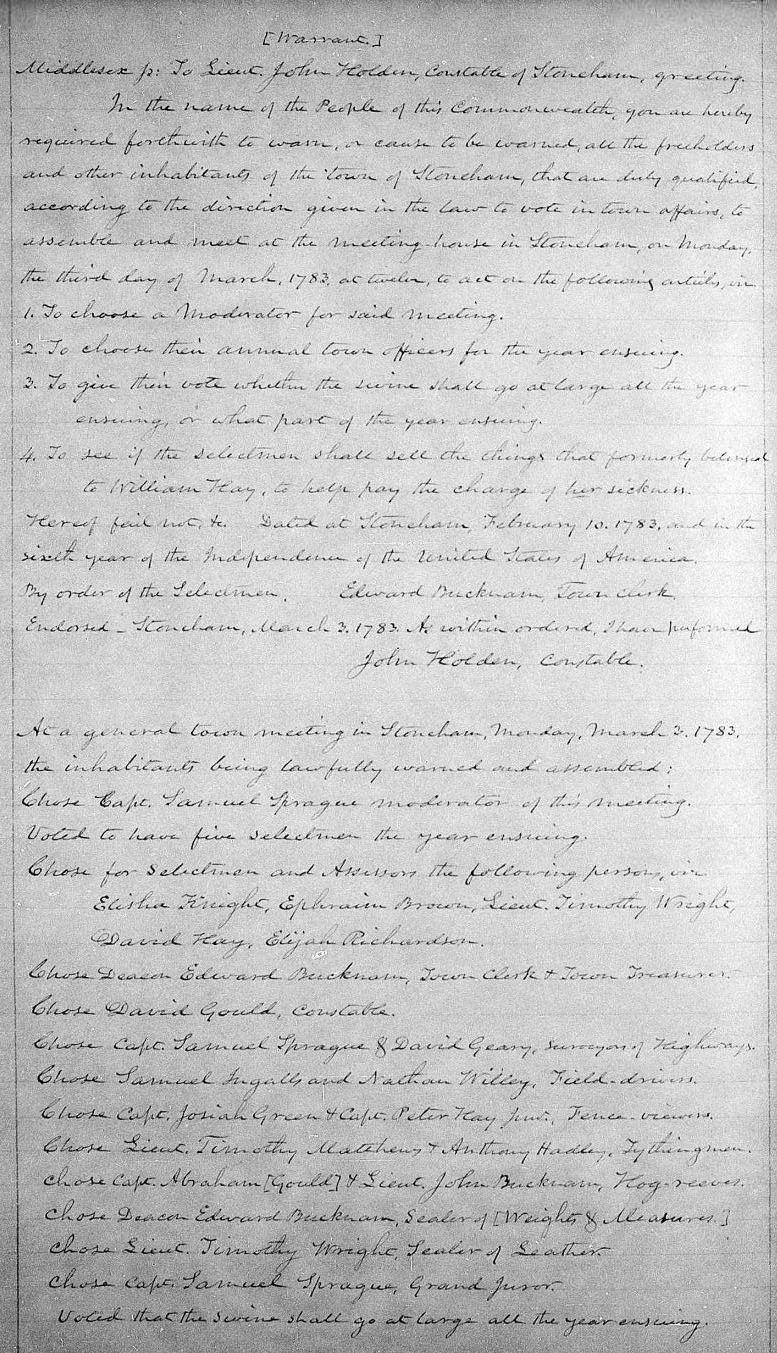 [Warrant.]
Middlesex ss: To Lieut. John Holden, Constable of Stoneham, greeting.
In the name of the People of this Commonwealth, you are hereby
required forthwith to warn, or cause to be warned, all the freeholders
and other inhabitants of the town of Stoneham, that are duly qualified,
according to the direction given in the law to vote in town affairs, to
assemble and meet at the meeting-house in Stoneham, on Monday,
the third day of March, 1783, at twelve, to act on the following articles, viz
1. To choose a Moderator for said meeting.
2. To choose their annual town officers for the year ensuing.
3. To give their vote whether the swine shall go at large all the year
ensuing, or what part of the year ensuing.
4. To see if the selectmen shall sell the things that formerly belonged
to William Hay, to help pay the charge of her sickness.
Hereof fail not, &c. Dated at Stoneham, February 10. 1783, and in the
sixth year of the Independence of the United States of America.
By order of the Selectmen. Edward Bucknam, Town Clerk.
Endorsed - Stoneham, March 3. 1783. As within ordered, I have performed
John Holden, Constable.
At a general town meeting in Stoneham, Monday, March 3. 1783,
the inhabitants being lawfully warned and assembled:
Chose Capt. Samuel Sprague moderator of this meeting.
Voted to have five selectmen the year ensuing.
Chose for Selectmen and Assessors the following persons, viz
Elisha Knight, Ephraim Brown, Lieut. Timothy Wright,
David Hay, Elijah Richardson.
Chose Deacon Edward Bucknam, Town Clerk & Town Treasurer.
Chose David Gould, Constable.
Chose Capt. Samuel Sprague & David Geary, Surveyors of Highways.
Chose Samuel Ingalls and Nathan Willey, Field-drivers.
Chose Capt. Josiah Green & Capt. Peter Hay junr., Fence-viewers.
Chose Lieut. Timothy Matthews & Anthony Hadley, Tythingmen.
Chose Capt. Abraham [Gould] & Lieut. John Bucknam, Hog-reeves.
Chose Deacon Edward Bucknam, Sealer of [Weights & Measures.]
Chose Lieut. Timothy Wright, Sealer of Leather.
Chose Capt. Samuel Sprague, Grand Juror.
Voted that the swine shall go at large all the year ensuing.